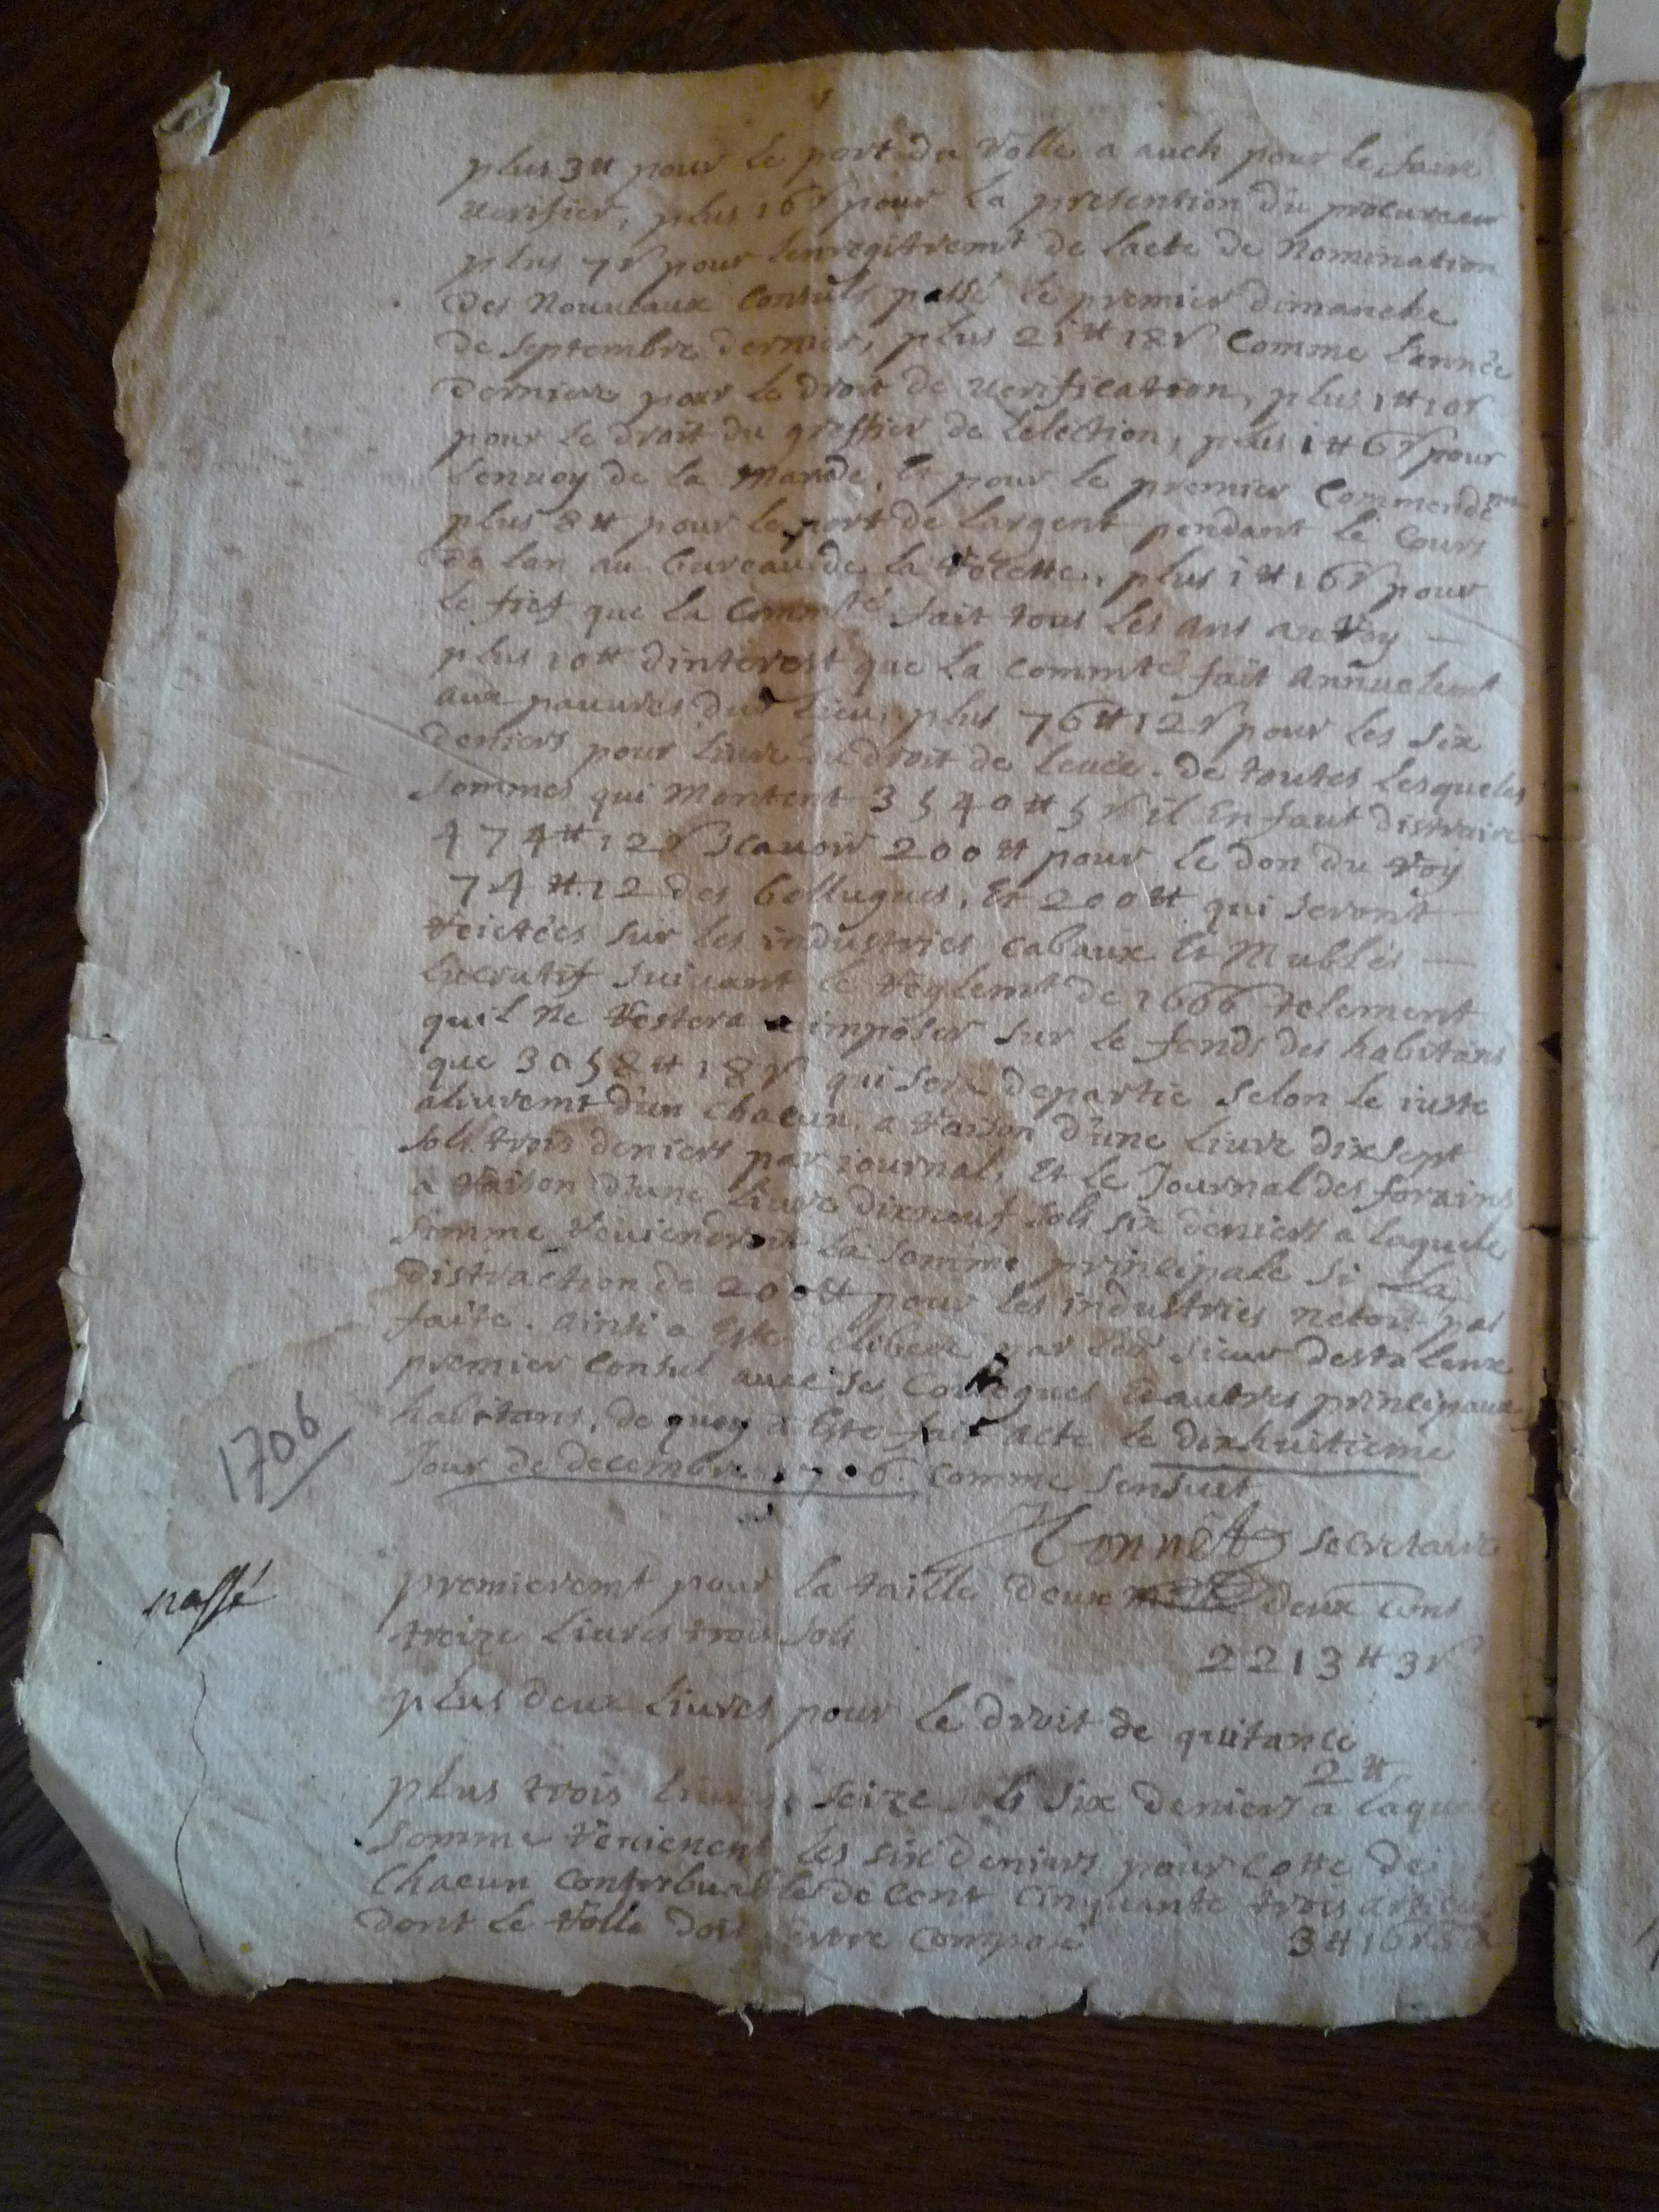 plus 3 ₶ pour le port du rolle a auch pour le faire
verifier, plus 16 s pour la presention du procureur
plus 7 s pour lenregitremt de lacte de Nomination
des Nouveaux Consuls passé le premier dimanche
de septembre dernier, plus 21 ₶ 18 s Comme lannée
derniere pour le droit de verification, plus 1 ₶ 10 s
pour le droit du greffier de lelection, plus 1 ₶ 6 s pour
lenvoy de la Mande, et pour le premier Commendemt
plus 8 ₶ pour le port de largent pendant le Cours
de lan au bureau de la recette, plus 1 ₶ 16 s pour
le fief que la Commté fait tous les ans au roy
plus 10 ₶ dinterest que la Commté fait Annuelemt
aux pauvres dud lieu, plus 76 ₶ 12 s pour les six
deniers pour livre du droit de levée. de toutes lesqueles
sommes qui Montent 3540 ₶ 5 s il En faut distraire
474 ₶ 12 s scavoir 200 ₶ pour le don du roy
74 ₶ 12 des bellugues, Et 200 ₶ qui seront
reictées sur les industries cabaux Et Mublés
lucratif suivant le reglemt de 1666 telement
quil Ne restera a imposer sur le fonds des habitans
que 3058 ₶ 18 s qui sera departie selon le iuste
alivremt d'un chacun, a raison d'une livre dixsept
sols trois deniers par iournal, Et le Journal des forains
a raison d'une livre dixneuf sols six deniers a laquele
somme reviendroit la somme principale si la
distraction de 200 ₶ pour les industries netoit pas
faite. ainsi a Este delibere par led sieur
premier Consul avec ses Colegues Et autres principaux
habitans, de quoy a Este fait acte le dixhuitieme
Jour de decembre 1706. Comme sensuit
secretaire
1706
passé
premieremt pour la taille deux deux cens
treize livres trois sols
2213 ₶ 3 s
plus deux livres pour le droit de quitance
2 ₶
plus trois livres seize sols six deniers a laquele
somme revienent les six deniers pour cotte de
Chacun Contribuable de cent cinquante trois articles
dont le rolle doit estre Composé
3 ₶ 16 s 6 d